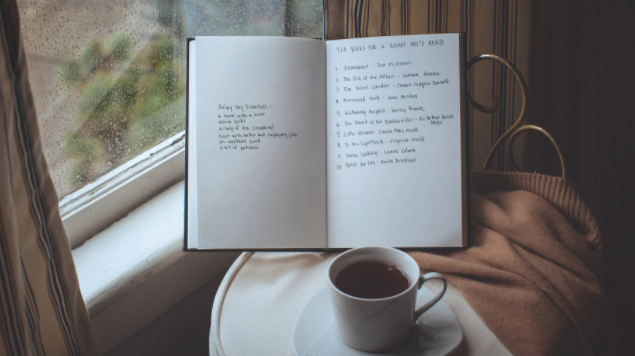 Rainy Day Essentials:-
a room with a view
warm socks
a mug of tea (steaming)
toast with butter and raspberry jam
an excellent book
a bit of patience
TEN BOOKS FOR A RAINY DAY'S READ
1. Atonement - Ian McEwan
2. The End of the Affair - Graham Greene
3. The Secret Garden - Frances Hodgson Burnett
4. Mansfield Park - Jane Austen
5. Wuthering Heights - Emily Bronte
6. The Hound of the Baskervilles - Sir Arthur Conan
Doyle
7. Little Women - Louisa May Alcott
8. To the Lighthouse - Virginia Woolf
9. Home Cooking - Laurie Colwin
10. Hotel du Lac - Anita Brookner